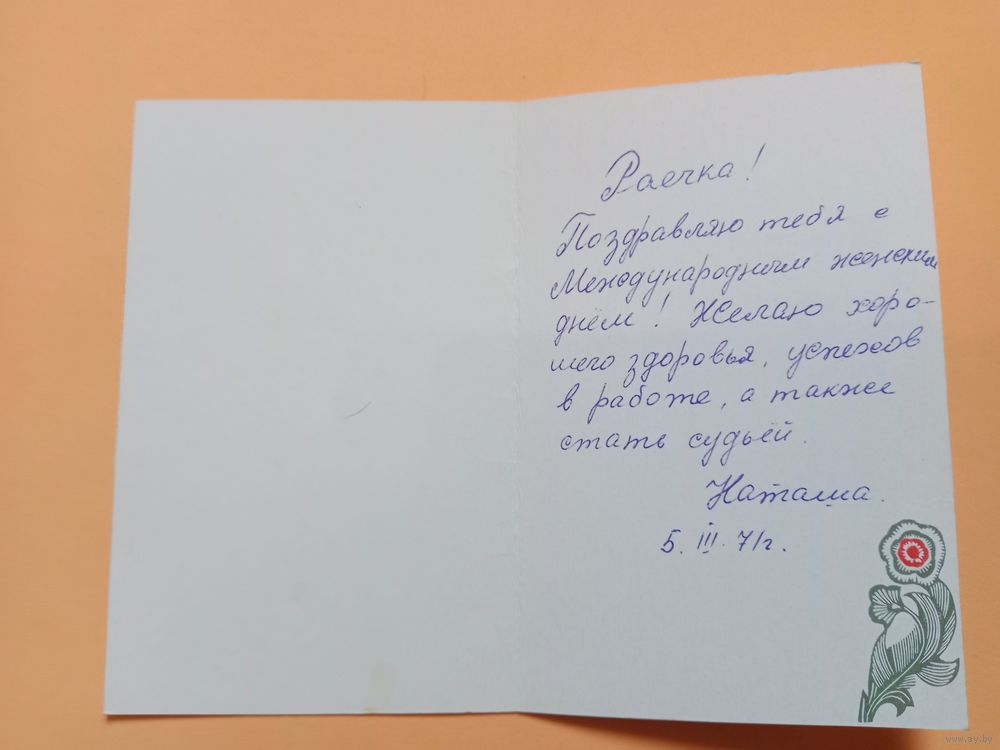 Раечка!
Поздравляю тебя с
Международным женским
днём! Желаю хоро-
шего здоровья, успехов
в работе, а также
стать судьёй.
Наташа.
5. III. 71г.
www.ay.by